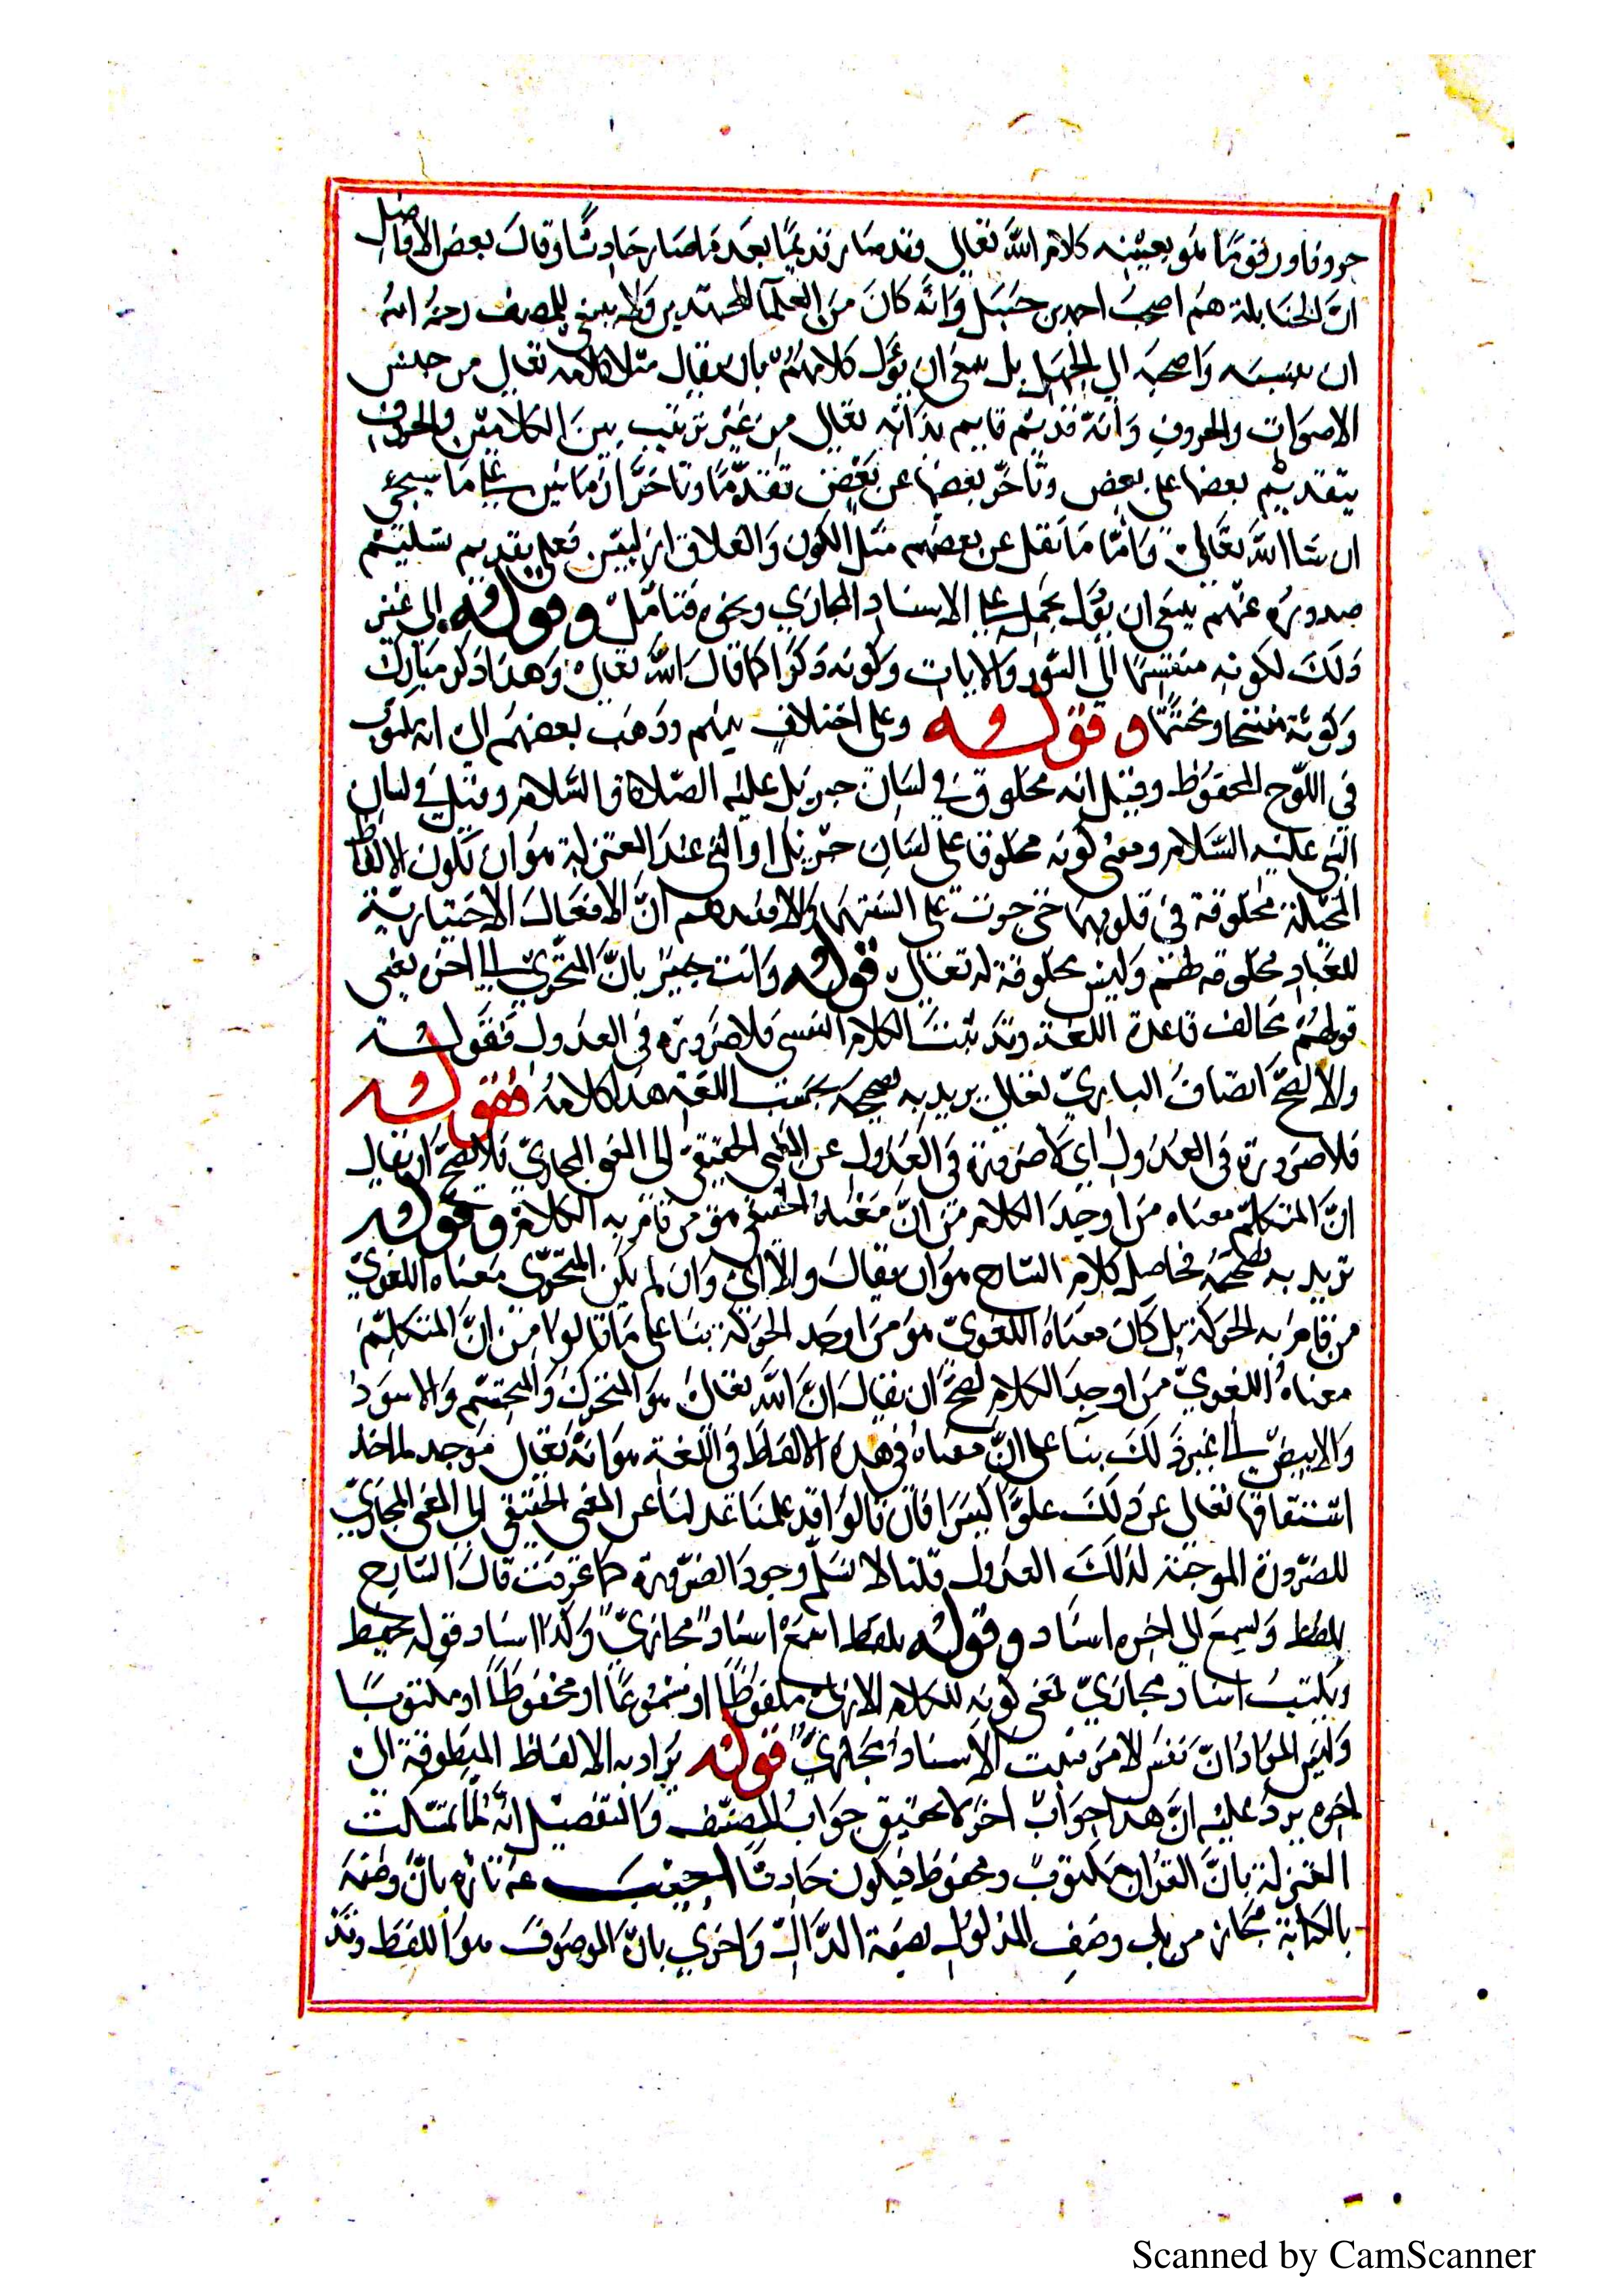 حروفا ورقوما هو بعينه كلام الله تعالى وقد صار قديما بعد ما صار حادثا وقال بعض الافاضل
ان الحنابلة هم اصحب احمد بن حنبل وانه كان من العلما المجتهدين ولا ينبغي للمصنف رحمه الله
ان ينسبه واصحبه الى الجهل بل ينبغي ان يؤل كلامهم بان يقال مثلا كلامه تعالى من جنس
الاصوات والحروف وانه قديم قايم بذاته تعالى من غير ترتيب بين الكلامين والحروف
بتقديم بعضها على بعض وتاخر بعضها عن بعض تقدما وتاخرا زمانيين على ما سيجئ
ان شا الله تعالى واما ما نقل عن بعضهم مثل الكون والغلاف ازليين فعلى تقديم تسليم
صدوره عنهم ينبغي ان يؤل بحمل على الاسناد المجازي ونحوه فتامل وقوله الى غير
ذلك لكونه منقسما الى السور والايات وكونه ذكرا كما قال الله تعالى وهذا ذكر مبارك
وكونه مفتتحا ومختتما وقوله وعلى اختلاف بينهم وذهب بعضهم الى انه مكتوب
في اللوح المحفوظ وقيل انه مخلوق في لسان جبريل عليه الصلاة والسلام وقيل في لسان
النبي عليه السلام ومعنى كونه مخلوقا على لسان جبريل او النبي عند المعتزلة هو ان تكون الالفاظ
المخيلة مخلوقة في قلوبهما حتى جرت على السنتهما والا فعندهم ان الافعال الاختيارية
للعباد مخلوقه لهم وليس مخلوقة له تعالى قوله وانت خبير بان المتحرك الى اخره يعني
قولهم مخالف قاعدة اللغة وقد ثبت الكلام النفسي فلا ضرورة في العدول فقوله
والا لصح اتصاف الباري تعالى يريد به صحيحه بحسب اللغة هذا كلامه فقوله
فلا ضرورة في العدول اي لا ضرورة في العدول عن المعنى الحقيقي الى المعنى المجازي فلا يصح ان يقال
ان المتكلم معناه من اوجد الكلام من ان معناه الحقيقي هو من قام به الكلام وقوله
تريد به صحيحه فحاصل كلام الشارح هو ان يقال والا اي وان لم يكن المتحرك معناه اللغوي
من قام به الحركة بل كان معناه اللغوي هو من اوجد الحركة بنا على ما قالوا من ان المتكلم
معناه اللغوي من اوجد الكلام لصح ان يقال ان الله تعالى هو المتحرك والمجتسم والاسود
والابيض الى غير ذلك بنا على ان معناه في هذه الالفاظ في اللغة هو انه تعالى موجد لماخذ
اشتقاقها تعالى عن ذلك علوا كبيرا فان قالوا قد علمنا عدلنا عن المعنى الحقيقي الى المعنى المجازي
للضرورة الموجبة لذلك العدول قلنا لا نسلم وجود الضرورة كما عرفت قال الشارح
يلفظ ويسمع الى اخره اسناد وقوله يلفظ اسمع اسناد مجازي وكذا اسناد قوله يحفظ
ويكتب اسناد مجازي لمعنى كونه للكلام الازلي ملفوظا او مسموعا او محفوظا او مكتوبا
وليس المراد ان نفس لامر مثلت الاسناد مجازي قوله يراد به الالفاظ المنطوقة الى
اخره يرد عليه ان هذا جواب اخر لا تحقيق جواب المصنف والتفصيل انه لما تمسكت
المعتزلة بان القران مكتوب ومحفوظ فيكون حادثا اجيب عنه تارة بان وصفه
بالكتابة مجاز من باب وصف المدلول بصفة الدال واخرى بان الموصوف هو اللفظ وقد
Scanned by CamScanner